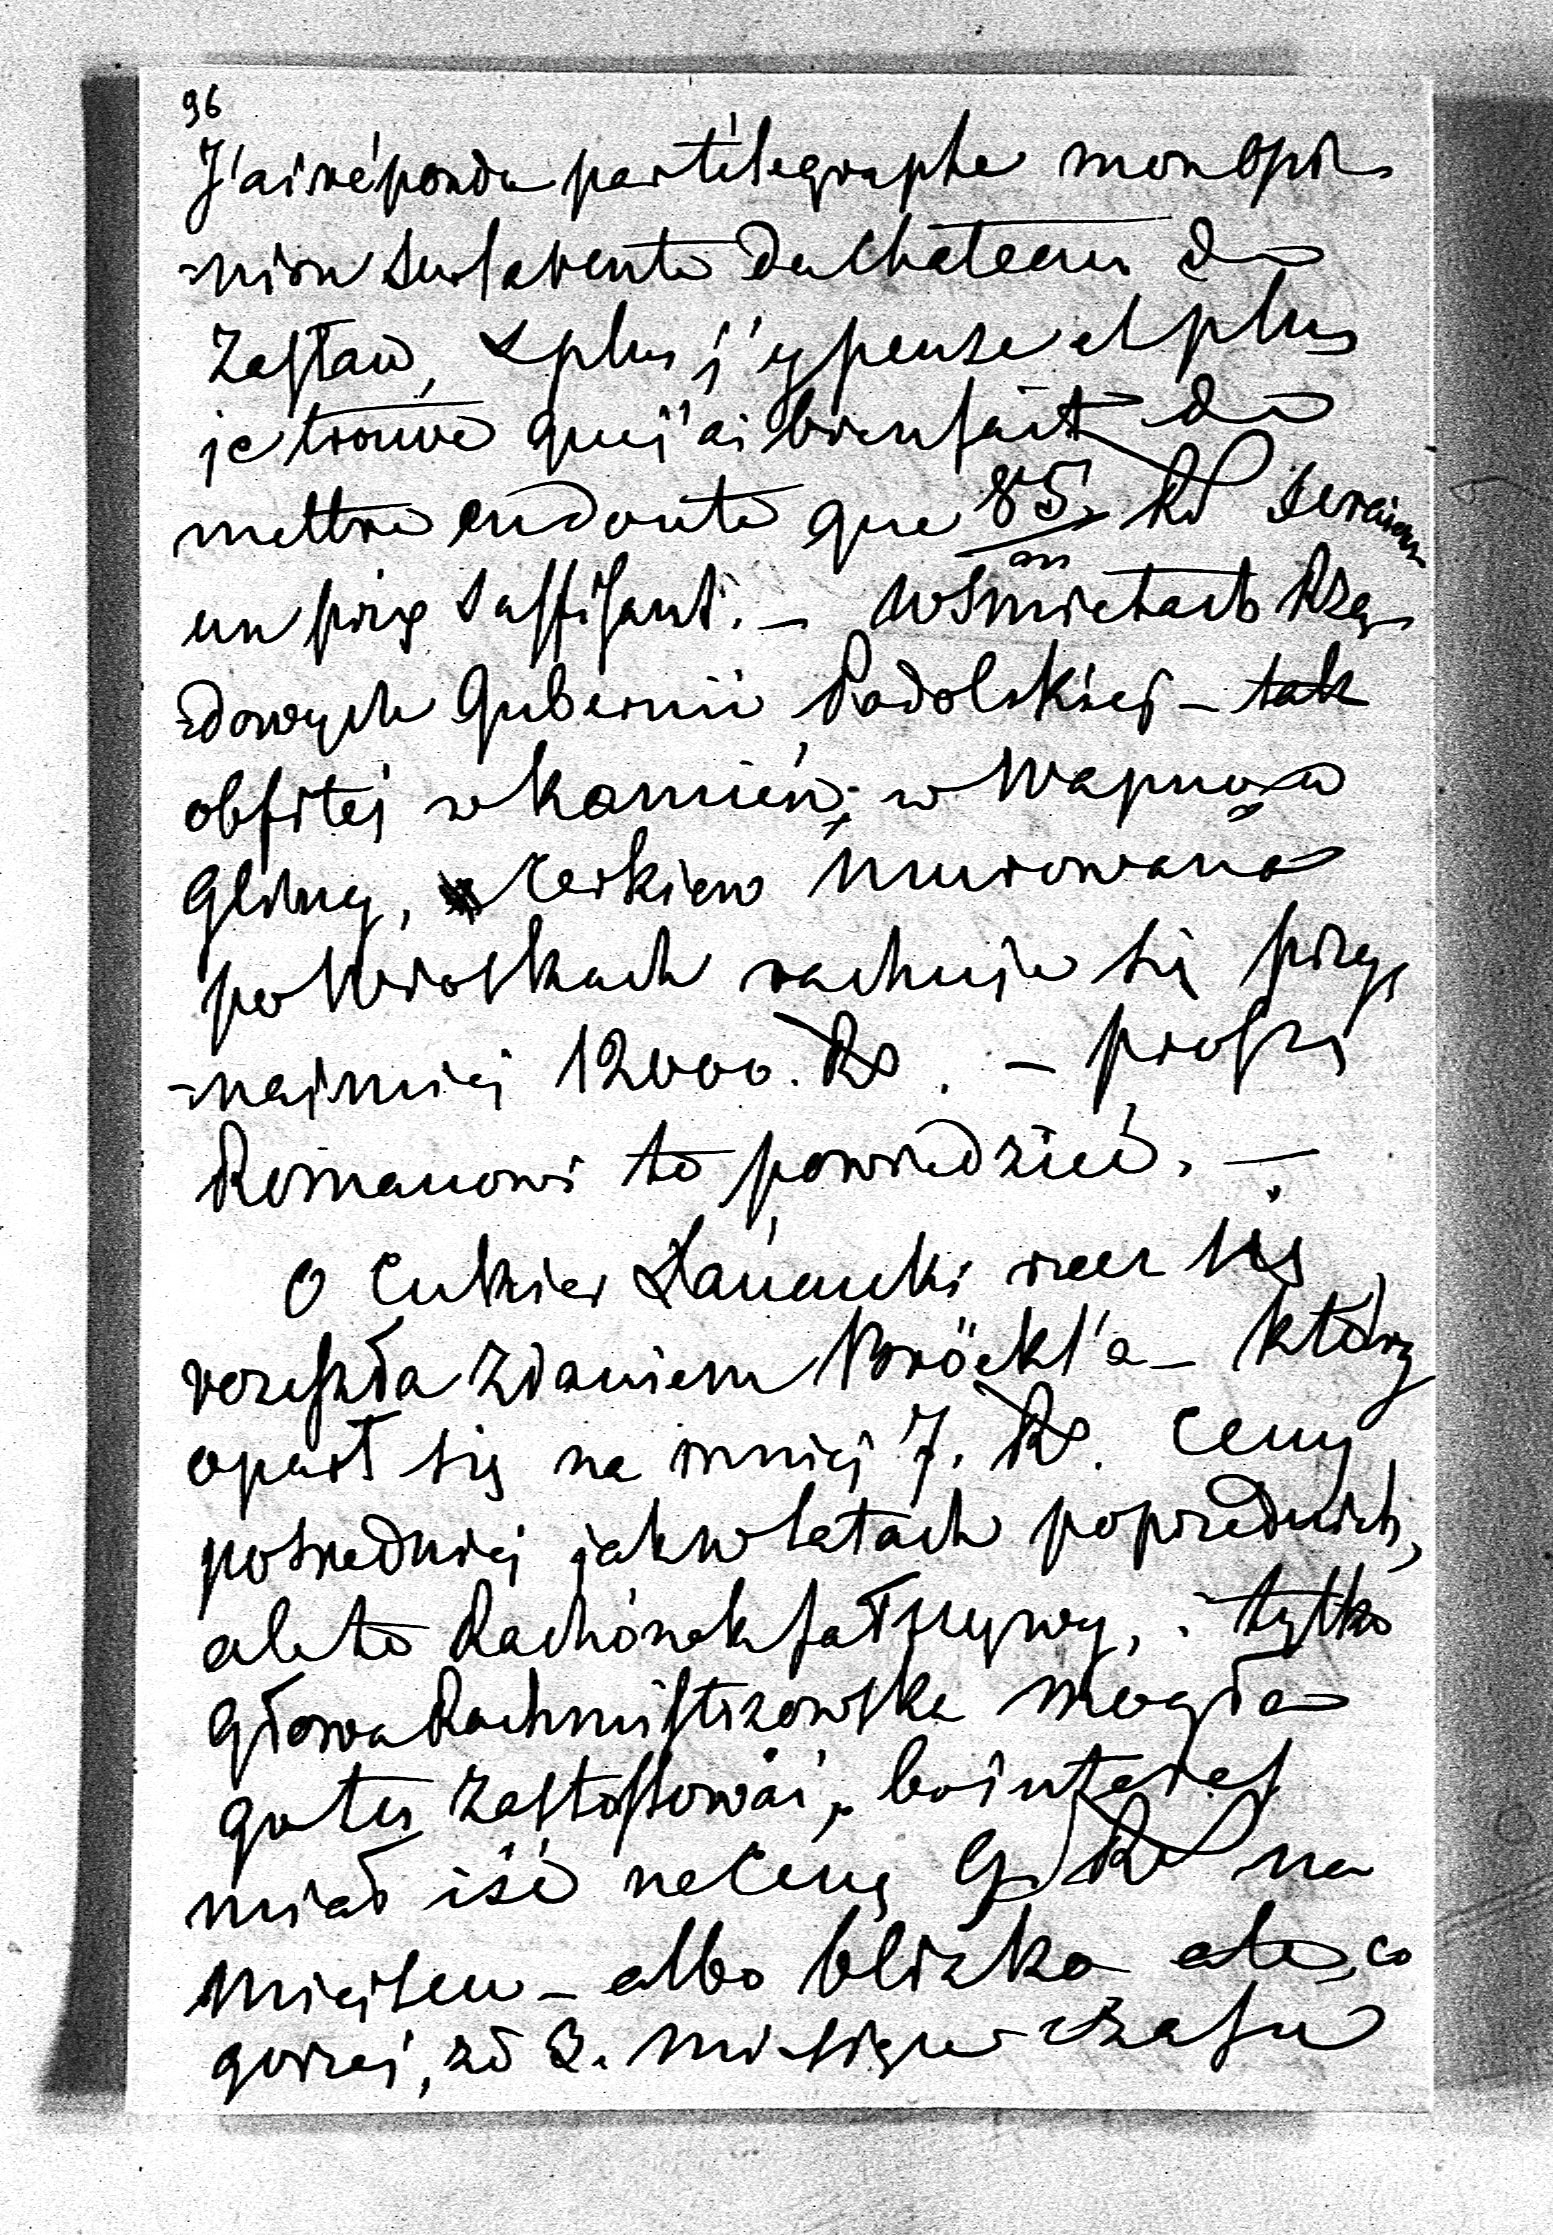 96
J'ai répondu par télegraphe mon opi-
-nion sur la vente du Chateau de
Zasław, & plus j'y pense et plus
je trouve que j'ai bien fait de
mettre en doute que 85/m Rs seraient
un prix suffisant. – W Smietach Rzą-
-dowych Gubernii Podolskiej – tak
obfitej w kamień; w Wapno & w
Glinę, Cerkiew murowana
po Wioskach rachuje się przy-
-najmniej 12000. Rs. – proszę
Romanowi to powiedzieć. –
O Cukier Łańcucki rzecz się
rozeszła zdaniem Bröckl'a – który
oparł się na mniej 7. Rs. Ceny
pośredniej jak w latach poprzednich,
ale to Rachónek fałszywy, i tylko
Głowa Rachmistrzowska mogła
go tu zastossować, bo interes
miał iść na Cenę 9. Rs na
Miejscu – albo blizko ale, co
gorzej, że 2. Miesiące czasu